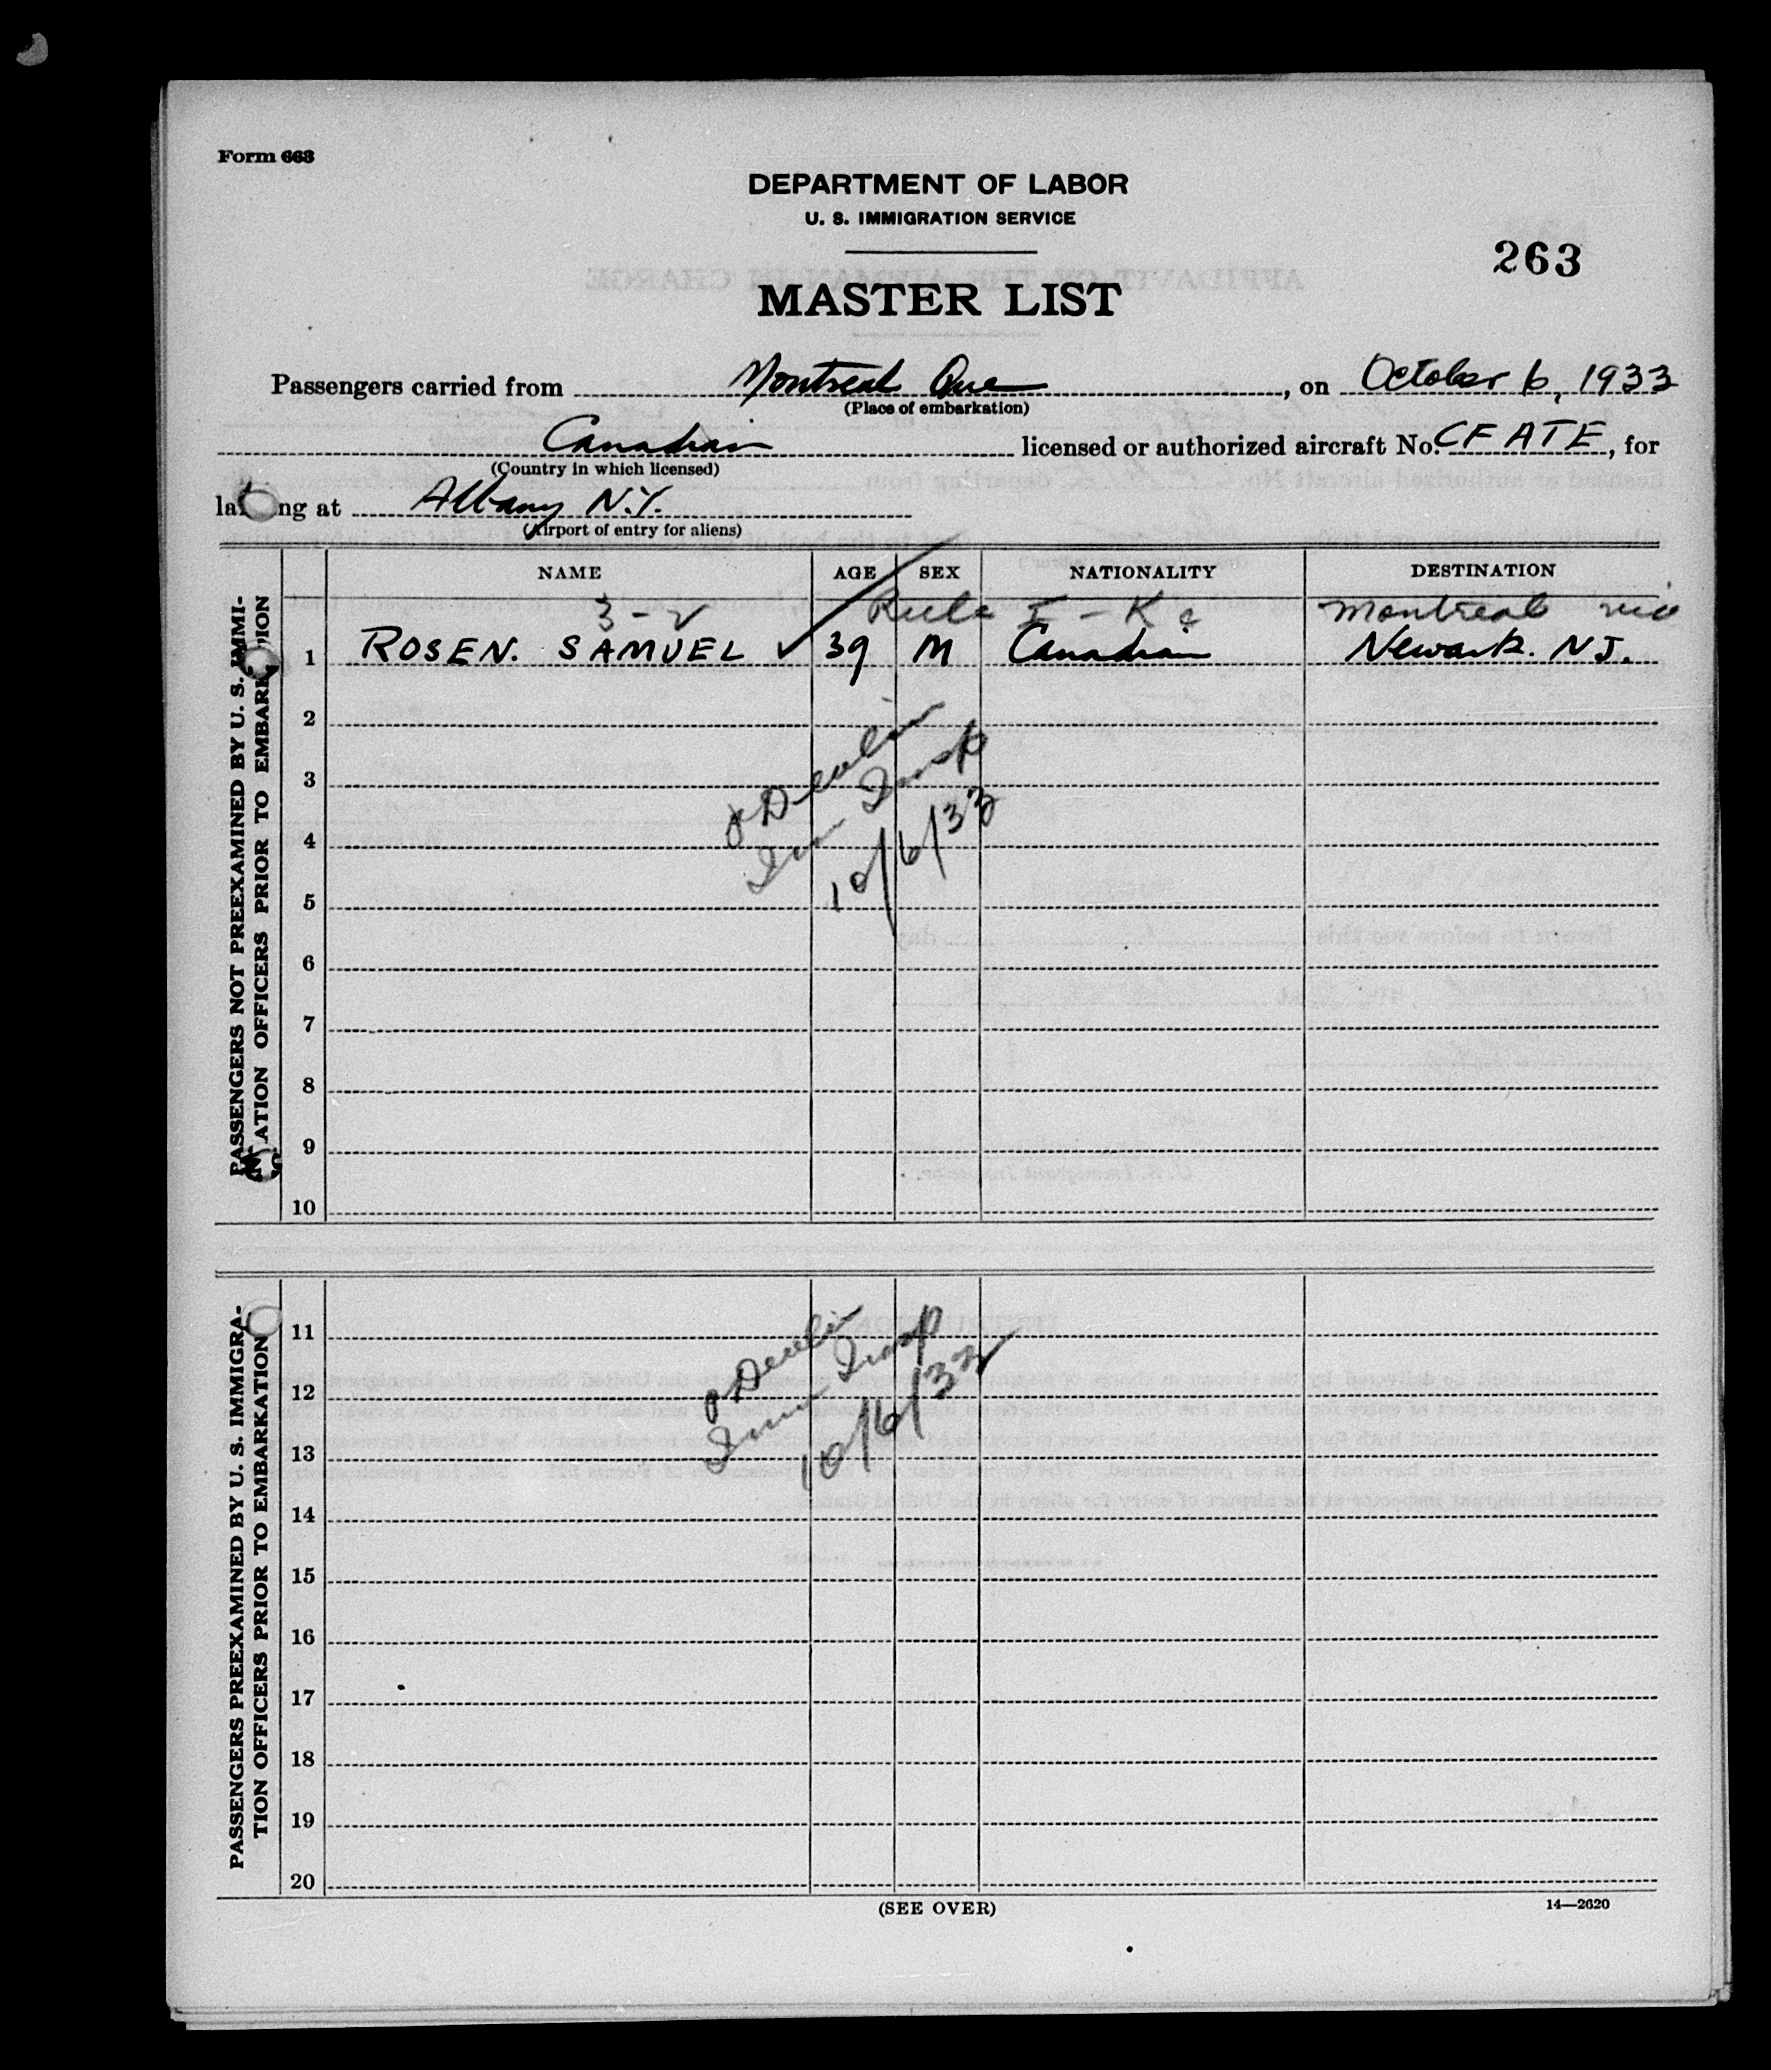 Form 663
DEPARTMENT OF LABOR
U. S. IMMIGRATION SERVICE
263
MASTER LIST
Passengers carried from Montreal Que, on October 6, 1933
(Place of embarkation)
Canadian licensed or authorized aircraft No. CF ATE, for
(Country in which licensed)
la ng at Albany N.Y.
(Airport of entry for aliens)
NAME AGE SEX NATIONALITY DESTINATION
3-2 Rule I - K Montreal via
1 ROSEN. SAMUEL ✓ 39 M Canadian Newark. NJ.
2
3
4
5
6
7
8
9
10
Imm Insp
10/6/33
PASSENGERS NOT PREEXAMINED BY U. S. IMMI-
ATION OFFICERS PRIOR TO EMBARK ION
11
12
13
14
15
16
17
18
19
20
Imm Insp
10/6/33
PASSENGERS PREEXAMINED BY U. S. IMMIGRA-
TION OFFICERS PRIOR TO EMBARKATION
(SEE OVER)
14—2620